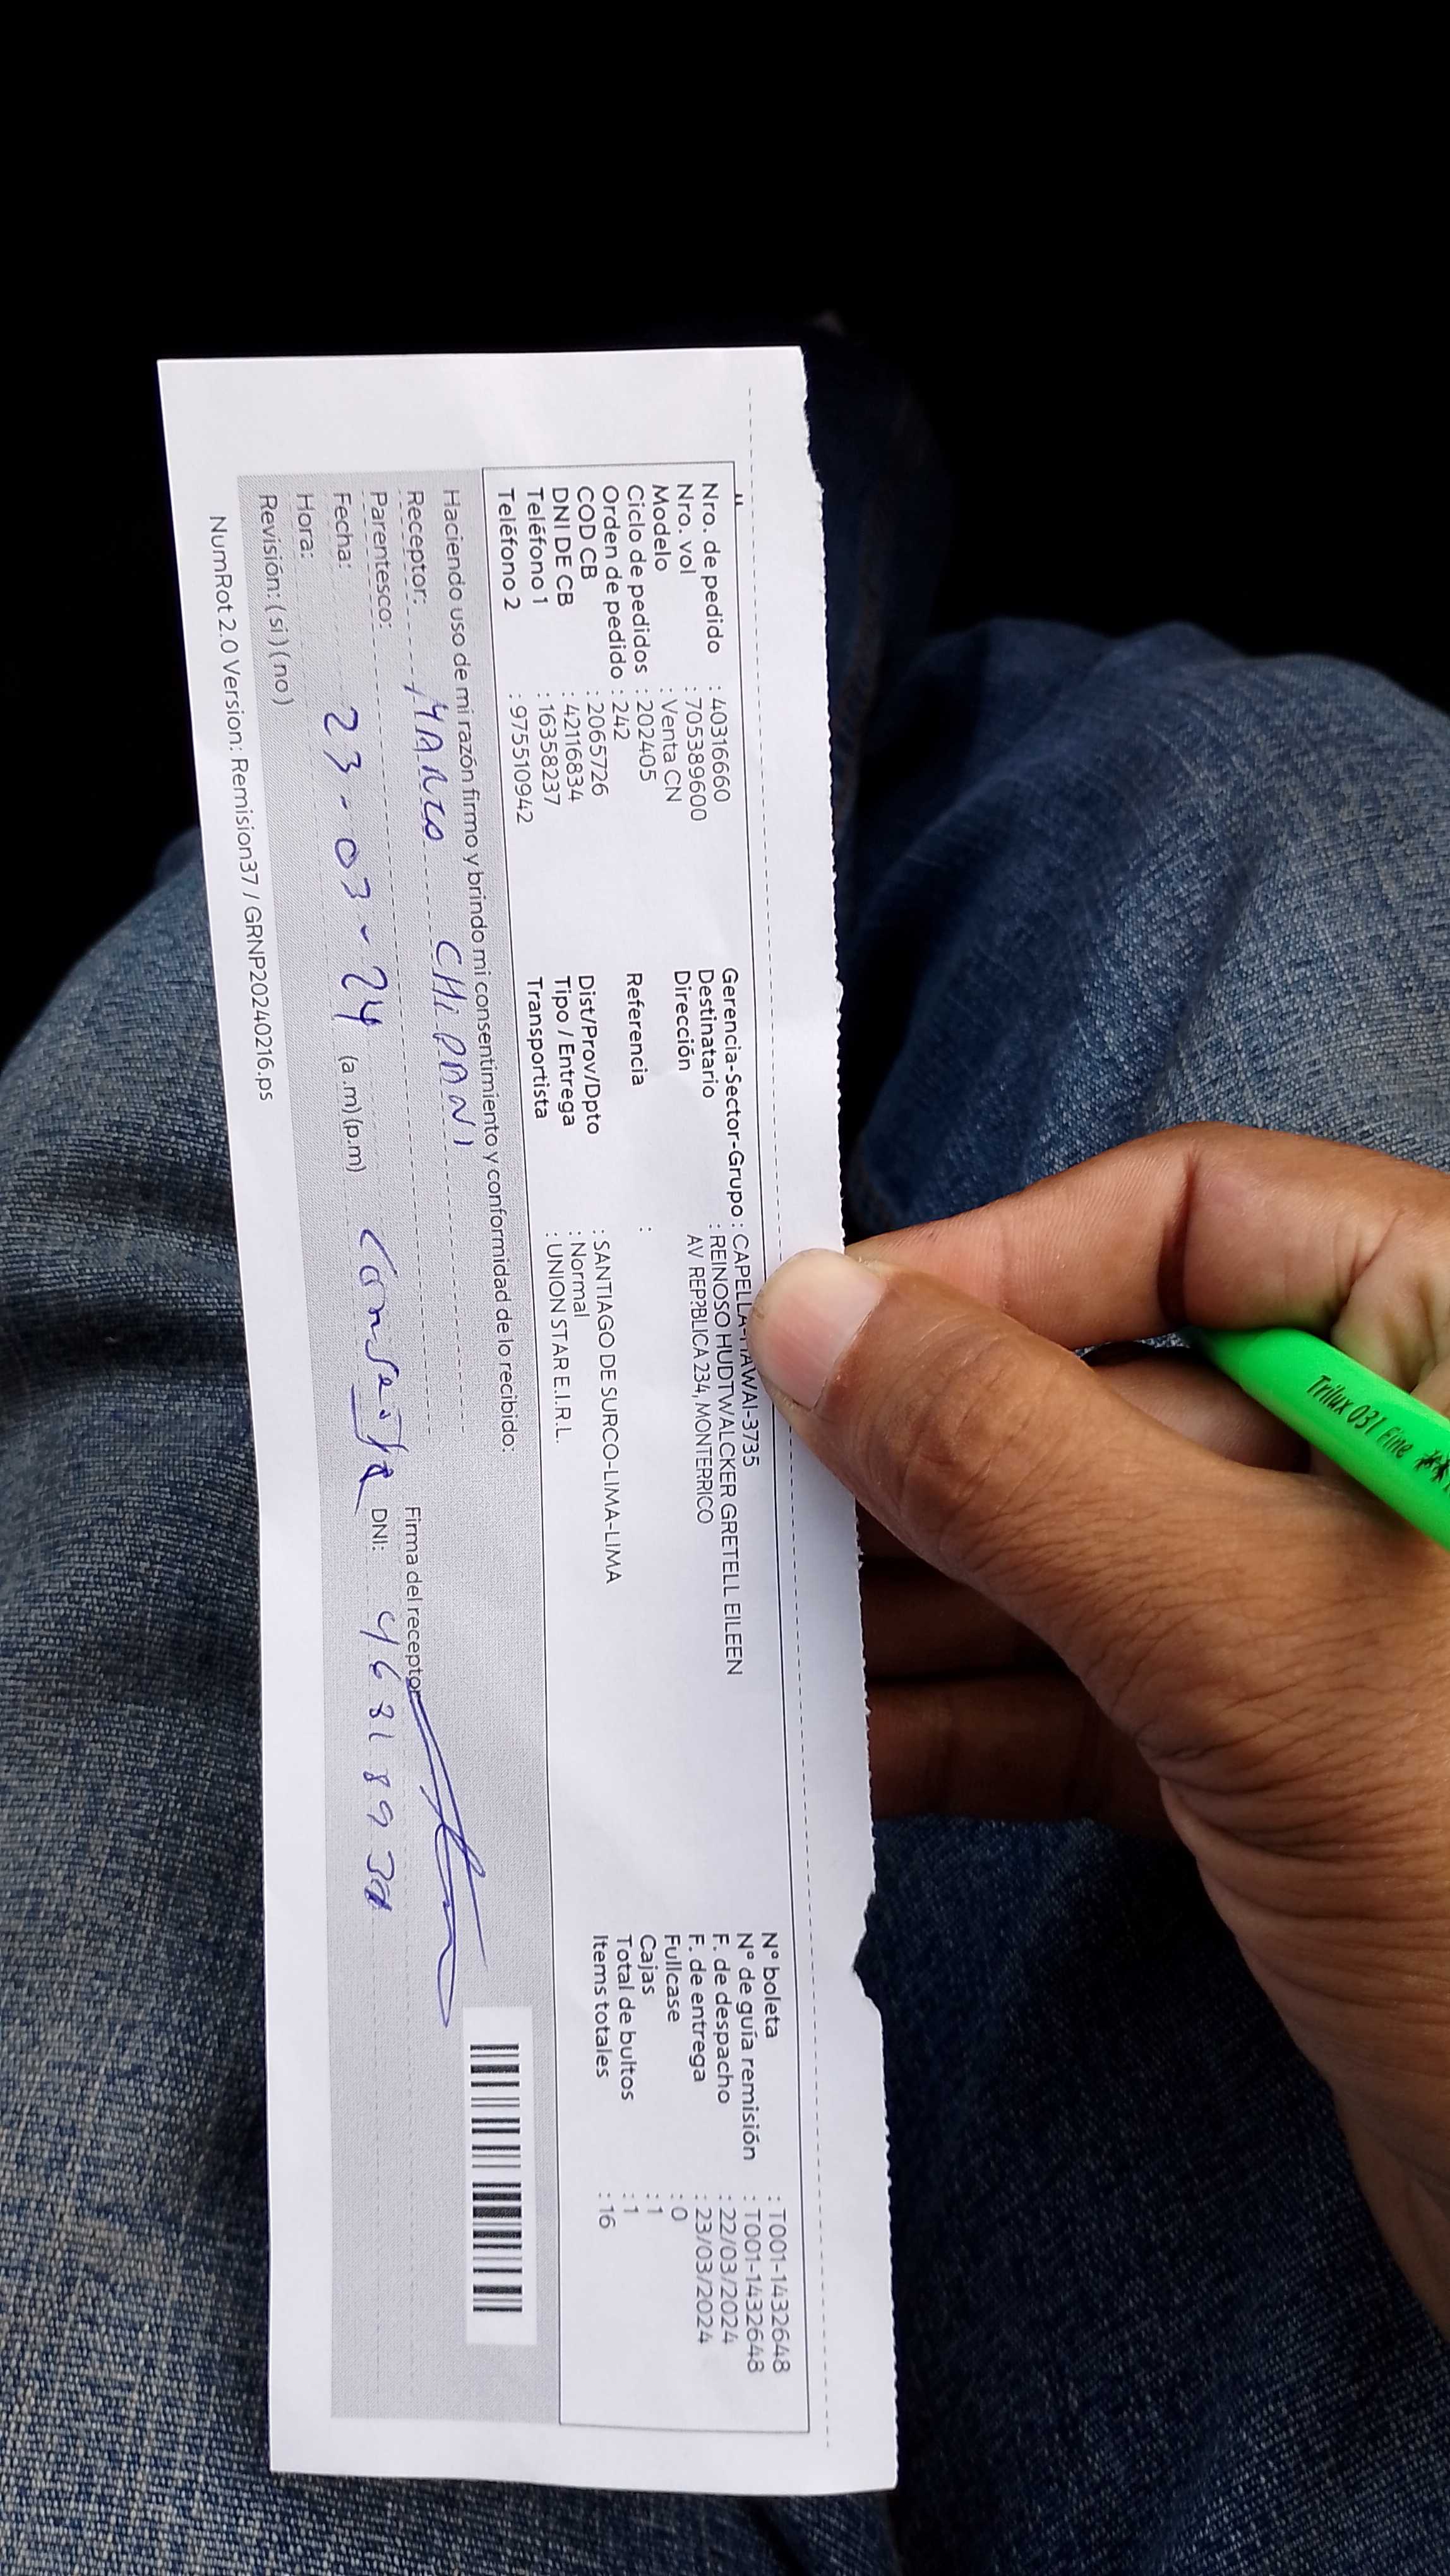 Nro. de pedido : 40316660
Nro. vol : 705389600
Modelo : Venta CN
Ciclo de pedidos : 202405
Orden de pedido : 242
COD CB : 2065726
DNI DE CB : 42116834
Teléfono 1 : 16358237
Teléfono 2 : 975510942
Gerencia-Sector-Grupo : CAPELLA-HAWAI-3735
Destinatario : REINOSO HUDTWALCKER GRETELL EILEEN
Dirección AV REP?BLICA 234, MONTERRICO
Referencia :
Dist/Prov/Dpto : SANTIAGO DE SURCO-LIMA-LIMA
Tipo / Entrega : Normal
Transportista : UNION STAR E.I.R.L.
N° boleta : T001-1432648
N° de guía remisión : T001-1432648
F. de despacho : 22/03/2024
F. de entrega : 23/03/2024
Fullcase : 0
Cajas : 1
Total de bultos : 1
Items totales : 16
Haciendo uso de mi razón firmo y brindo mi consentimiento y conformidad de lo recibido:
Receptor: MARCO CHIPANI
Parentesco:
Firma del receptor
Fecha: 23-03-24
Hora: (a.m)(p.m)
DNI:
Revisión: ( si ) ( no )
NumRot 2.0 Version: Remision37 / GRNP20240216.ps
Trilux 031 Fine